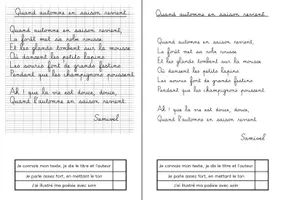 Quand automne en saison revient
Quand automne en saison revient,
La forêt met sa robe rousse
Et les glands tombent sur la mousse
Où dansent les petits lapins
Les souris font de grands festins
Pendant que les champignons poussent
Ah ! que la vie est douce, douce,
Quand l'automne en saison revient.
Samivel
Je connais mon texte, je dis le titre et l'auteur
Je parle assez fort, en mettant le ton
J'ai illustré ma poésie avec soin
Quand automne en saison revient
Quand automne en saison revient,
La forêt met sa robe rousse
Et les glands tombent sur la mousse
Où dansent les petits lapins
Les souris font de grands festins
Pendant que les champignons poussent.
Ah ! que la vie est douce, douce,
Quand l'automne en saison revient.
Samivel
Je connais mon texte, je dis le titre et l'auteur
Je parle assez fort, en mettant le ton
J'ai illustré ma poésie avec soin